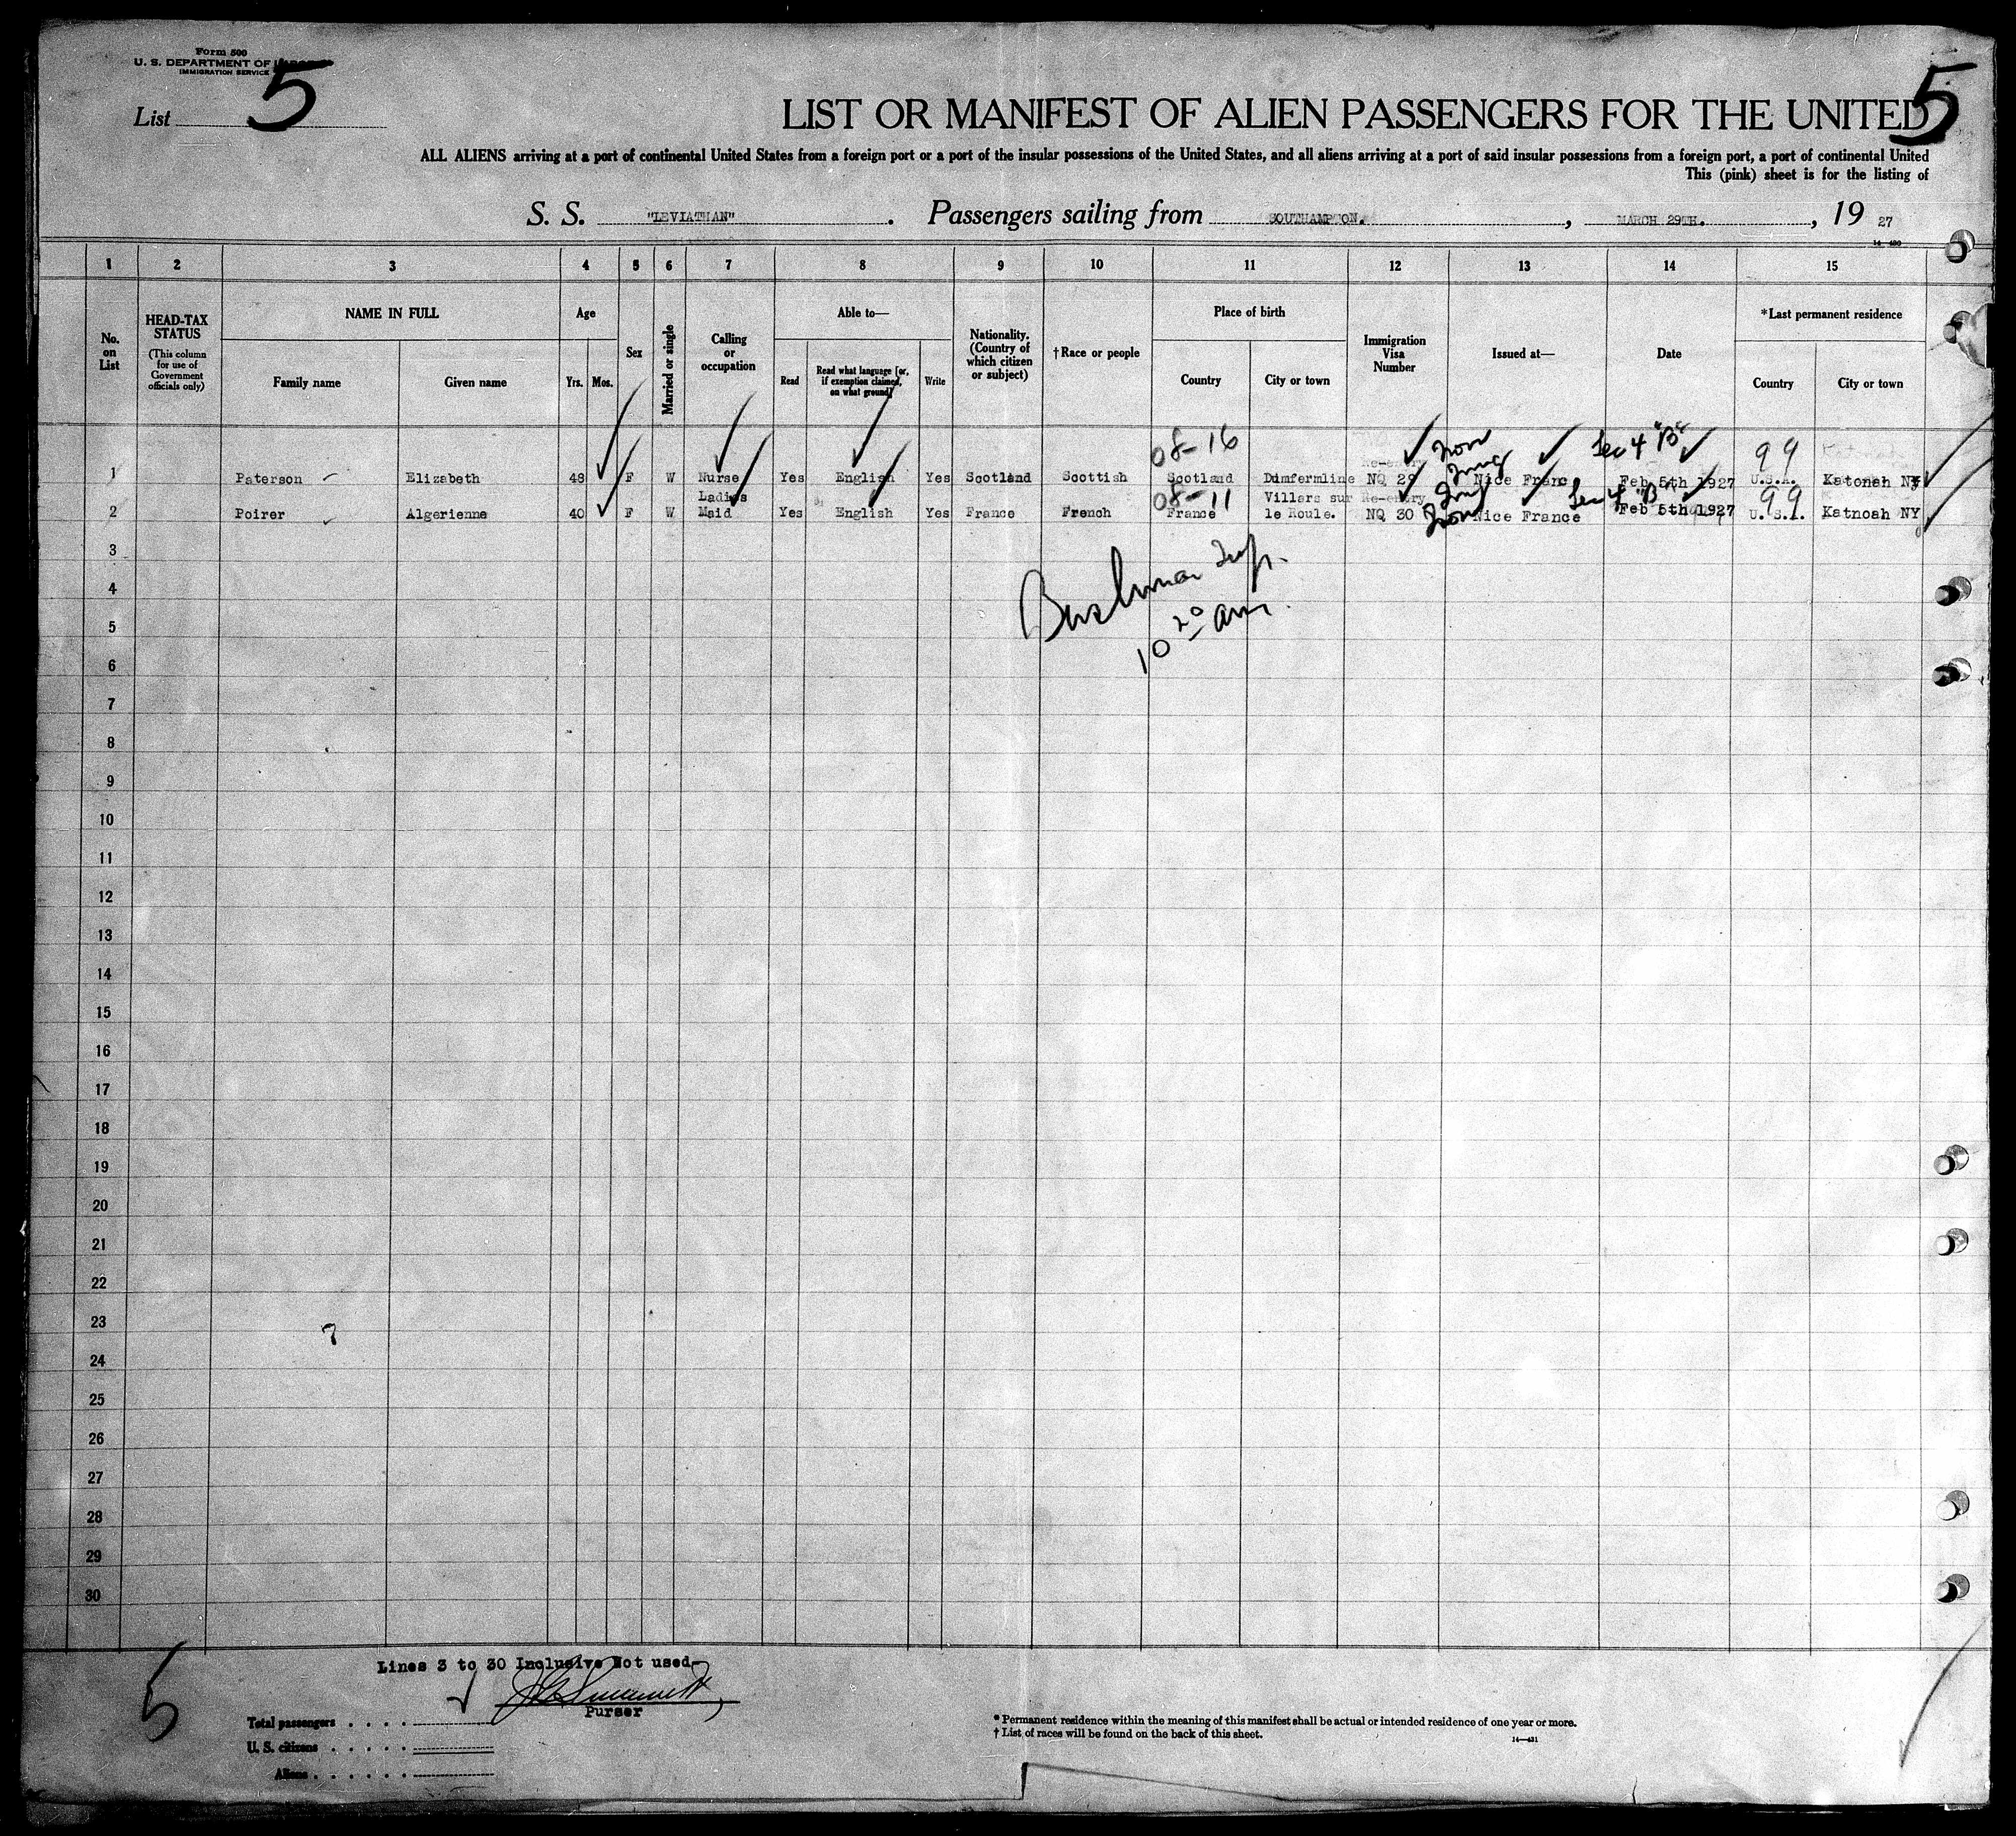 Form 500
U. S. DEPARTMENT OF
IMMIGRATION SERVICE
List 5
5
LIST OR MANIFEST OF ALIEN PASSENGERS FOR THE UNITED
ALL ALIENS arriving at a port of continental United States from a foreign port or a port of the insular possessions of the United States, and all aliens arriving at a port of said insular possessions from a foreign port, a port of continental United
This (pink) sheet is for the listing of
S. S. "LEVIATHAN". Passengers sailing from SOUTHAMPTON., MARCH 29TH., 19 27
14—430
1 2 3 4 5 6 7 8 9 10 11 12 13 14 15
No. on List
HEAD-TAX STATUS (This column for use of Government officials only)
NAME IN FULL
Family name
Given name
Age
Yrs. Mos.
Sex
Married or single
Calling or occupation
Able to—
Read
Read what language [or, if exemption claimed, on what ground]
Write
Nationality. (Country of which citizen or subject)
†Race or people
Place of birth
Country
City or town
Immigration Visa Number
Issued at—
Date
*Last permanent residence
Country
City or town
08-16 Sec 4 "B" 99
Re-entry
1 Paterson Elizabeth 48 F W Nurse Yes English Yes Scotland Scottish Scotland Dimfermline NQ 29 Nice Franc Feb 5th 1927 U.S.A. Katonah NY
Ladies 08-11 Villers sur Re-entry Sec 4 "B" 99
2 Poirer Algerienne 40 F W Maid Yes English Yes France French France le Roule. NQ 30 Nice France Feb 5th 1927 U.S.A. Katnoah NY
3
4
5
6
7
8
9
10
11
12
13
14
15
16
17
18
19
20
21
22
23
24
25
26
27
28
29
30
10 20 am.
Lines 3 to 30 Inclusive Not used
Purser
5
Total passengers
U. S. citizens
Aliens
* Permanent residence within the meaning of this manifest shall be actual or intended residence of one year or more.
† List of races will be found on the back of this sheet.
14—431